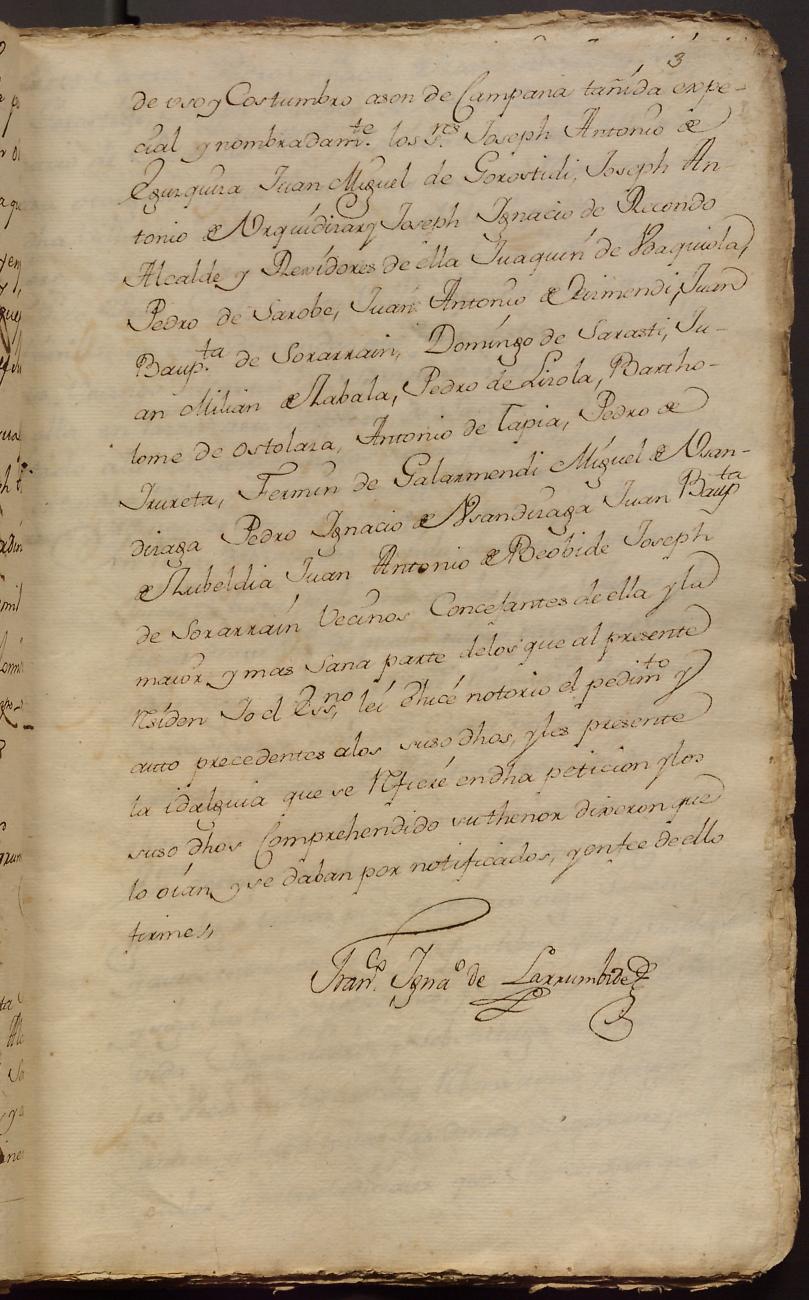 3
de uso y Costumbre a son de Campana tañida expe-
cial y nombradamte. los Srs. Joseph Antonio de
Eguzquiza Juan Miguel de Gorostidi, Joseph An-
tonio de Urquidizar y Joseph Ignacio de Recondo
Alcalde y Rexidores de ella Juaquin de Baquiola,
Pedro de Sarobe, Juan Antonio de Irimendi, Juan
Baupta. de Sorarrain, Domingo de Sarasti, Ju-
an Milian de Zabala, Pedro de Lizola, Bartho-
lome de Ostolaza, Antonio de Tapia, Pedro de
Irureta, Fermin de Galarmendi Miguel de Usan-
dizaga Pedro Ignacio de Usandizaga Juan Baupta
de Zubeldia Juan Antonio de Beobide Joseph
de Sorarrain Vecinos Concejantes de ella y la
maior y mas sana parte delos que al presente
residen Io el Essno, lei è hicé notorio el pedimto y
auto precedentes alos suso dhos, y les presente
la idalguia que se refieré en dha peticion y los
suso dhos Comprehendido su thenor dixeron que
lo oían y se daban por notificados, y en fee de ello
firmé,
Franco. Ignao de Larrumbide